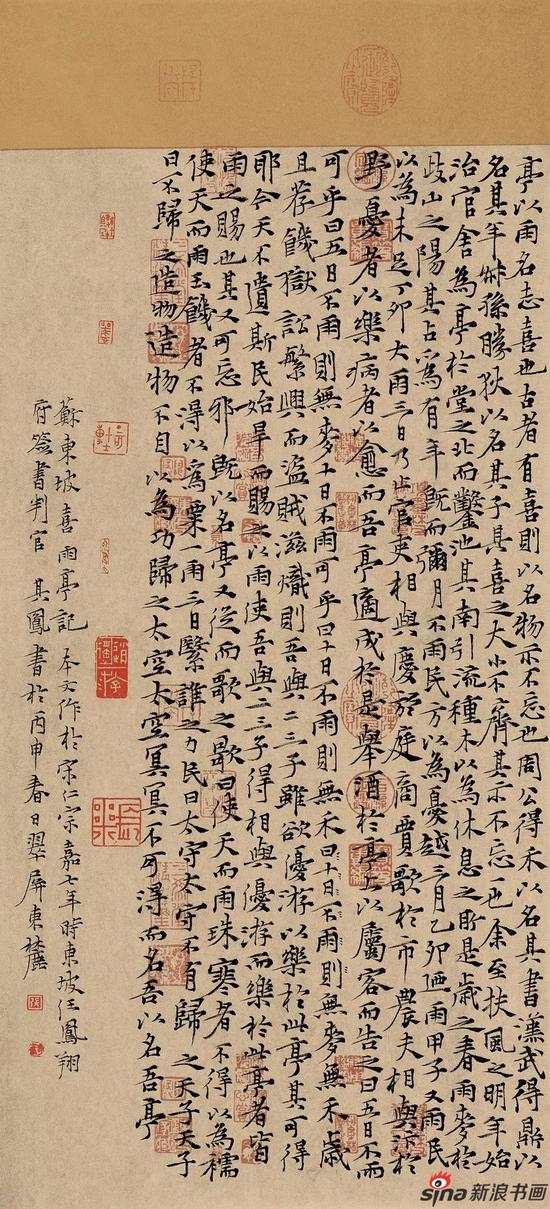 亭以雨名志喜也古者有喜則以名物示不忘也周公得禾以名其書漢武得鼎以
名其年叔孫勝狄以名其子其喜之大小不齊其示不忘一也余至扶風之明年始
治官舍為亭於堂之北而鑿池其南引流種木以為休息之所是歲之春雨麥於
歧山之陽其占為有年既而彌月不雨民方以為憂越三月乙卯迺雨甲子又雨民
以為未足丁卯大雨三日乃止官吏相與慶於庭商賈歌於市農夫相與於
野憂者以樂病者以愈而吾亭適成於是舉酒於亭上以屬客而告之曰五日不雨
可乎曰五日不雨則無麥十日不雨可乎曰十日不雨則無禾曰十日不雨則無麥無禾歲
且荐饑獄訟繁興而盜賊滋熾則吾與二三子雖欲優游以樂於此亭其可得
耶今天不遺斯民始旱而賜之以雨使吾與二三子得相與優游而樂於此亭者皆
雨之賜也其又可忘邪既以名亭又從而歌之歌曰使天而雨珠寒者不得以為襦
使天而雨玉饑者不得以為粟一雨三日繄誰之力民曰太守太守不有歸之天子天子
曰不歸之造物造物不自以為功歸之太空太空冥冥不可得而名吾以名吾亭
蘇東坡喜雨亭記 本文作於宋仁宗嘉七年時東坡任鳳翔
府簽書判官 其鳳書於丙申春日翠屏東麓
sina新浪书画